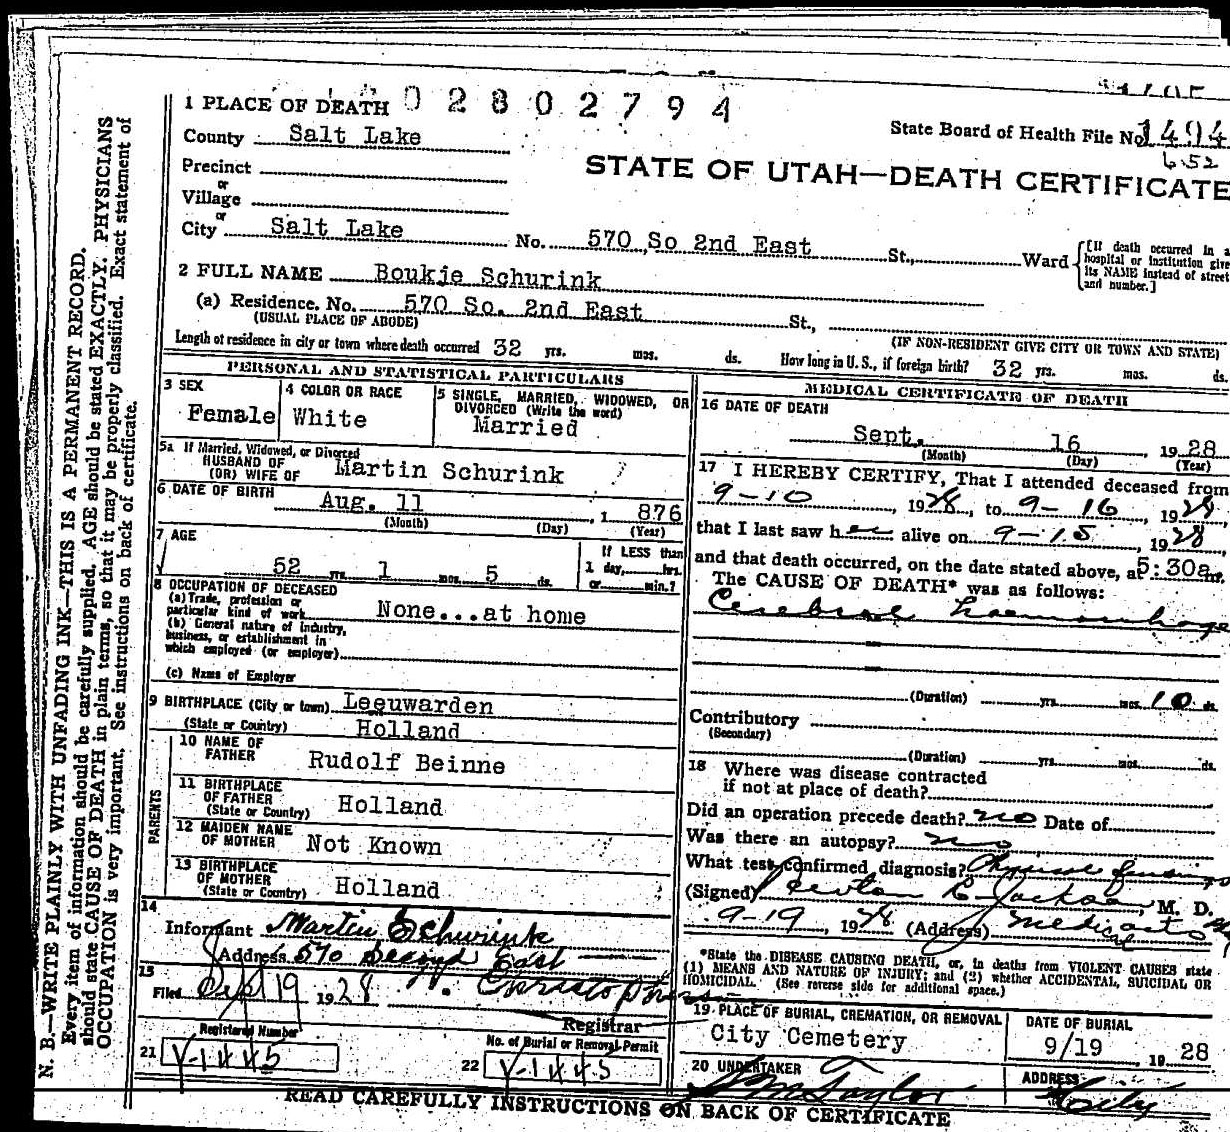 N. B.—WRITE PLAINLY WITH UNFADING INK—THIS IS A PERMANENT RECORD.
Every item of information should be carefully supplied. AGE should be stated EXACTLY. PHYSICIANS
should state CAUSE OF DEATH in plain terms, so that it may be properly classified. Exact statement of
OCCUPATION is very important. See instructions on back of certificate.
02802794
1 PLACE OF DEATH
State Board of Health File No. 1494
652
County Salt Lake
STATE OF UTAH—DEATH CERTIFICATE
Precinct
or
Village
or
City Salt Lake No. 570 So 2nd East St., Ward
[If death occurred in a
hospital or institution give
its NAME instead of street
and number.]
2 FULL NAME Boukje Schurink
(a) Residence. No. 570 So. 2nd East St.,
(USUAL PLACE OF ABODE) (IF NON-RESIDENT GIVE CITY OR TOWN AND STATE)
Length of residence in city or town where death occurred 32 yrs. mos. ds. How long in U. S., if foreign birth? 32 yrs. mos. ds.
PERSONAL AND STATISTICAL PARTICULARS
3 SEX
Female
4 COLOR OR RACE
White
5 SINGLE, MARRIED, WIDOWED, OR
DIVORCED (Write the word)
Married
5a If Married, Widowed, or Divorced
HUSBAND OF
(OR) WIFE OF Martin Schurink
6 DATE OF BIRTH Aug. 11, 1 876
(Month) (Day) (Year)
7 AGE
52 yrs. 1 mos. 5 ds.
If LESS than
1 day, hrs.
or min.?
8 OCCUPATION OF DECEASED
(a) Trade, profession or
particular kind of work None...at home
(b) General nature of Industry,
business, or establishment in
which employed (or employer)
(c) Name of Employer
9 BIRTHPLACE (City or town) Leeuwarden
(State or Country) Holland
PARENTS
10 NAME OF
FATHER Rudolf Beinne
11 BIRTHPLACE
OF FATHER
(State or Country) Holland
12 MAIDEN NAME
OF MOTHER Not Known
13 BIRTHPLACE
OF MOTHER
(State or Country) Holland
14
Informant Martin Schurink
Address 570 Second East
15
Filed Sept 19 1928
Registrar
Registered Number
21 V-1445
No. of Burial or Removal Permit
22 V-1445
MEDICAL CERTIFICATE OF DEATH
16 DATE OF DEATH
Sept. 16, 19 28
(Month) (Day) (Year)
17 I HEREBY CERTIFY, That I attended deceased from
9-10, 1928, to 9-16, 1928
that I last saw her alive on 9-15, 1928,
and that death occurred, on the date stated above, at 5:30a m.
The CAUSE OF DEATH* was as follows:
Cerebral haemorrhage
(Duration) yrs. mos. 10 ds.
Contributory
(Secondary)
(Duration) yrs. mos. ds.
18 Where was disease contracted
if not at place of death?
Did an operation precede death? no Date of
Was there an autopsy? no
What test confirmed diagnosis?
(Signed) Jackson, M. D.
9-19, 1928 (Address) Medical Arts
*State the DISEASE CAUSING DEATH, or, in deaths from VIOLENT CAUSES state
(1) MEANS AND NATURE OF INJURY; and (2) whether ACCIDENTAL, SUICIDAL OR
HOMICIDAL. (See reverse side for additional space.)
19 PLACE OF BURIAL, CREMATION, OR REMOVAL
City Cemetery
DATE OF BURIAL
9/19, 19 28
20 UNDERTAKER
Taylor
ADDRESS
City
READ CAREFULLY INSTRUCTIONS ON BACK OF CERTIFICATE